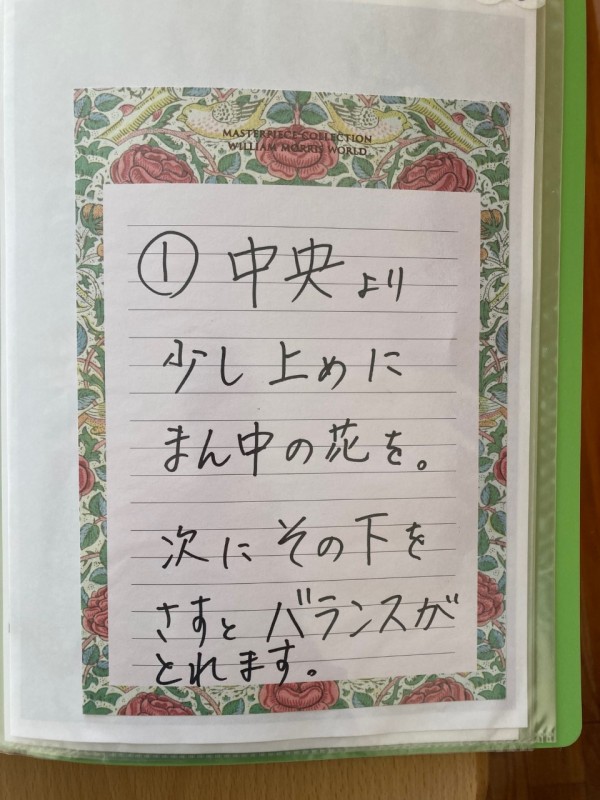 MASTERPIECE COLLECTION
WILLIAM MORRIS WORLD
① 中央より
少し上めに
まん中の花を。
次にその下を
さすとバランスが
とれます。